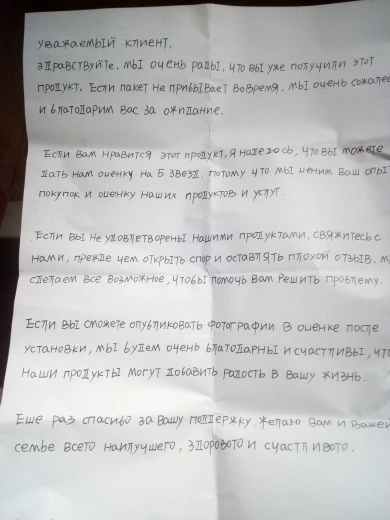 Уважаемый клиент,
Здравствуйте, мы очень рады, что вы уже получили этот
продукт. Если пакет не прибывает вовремя. мы очень сожалее
и благодарим вас за ожидание.
Если вам нравится этот продукт, я надеюсь, что вы можете
дать нам оценку на 5 звезд. потому что мы ценим ваш опыт
покупок и оценку наших продуктов и услуг.
Если вы не удовлетворены нашими продуктами, свяжитесь с
нами, прежде чем открыть спор и оставлять плохой отзыв. м
сделаем все возможное, чтобы помочь вам решить проблему.
Если вы сможете опубликовать фотографии в оценке после
установки, мы будем очень благодарны и счастливы, что
наши продукты могут добавить радость в вашу жизнь.
Еше раз спасибо за вашу поддержку. Желаю вам и вашей
семье всего наилучшего, здорового и счастливого.